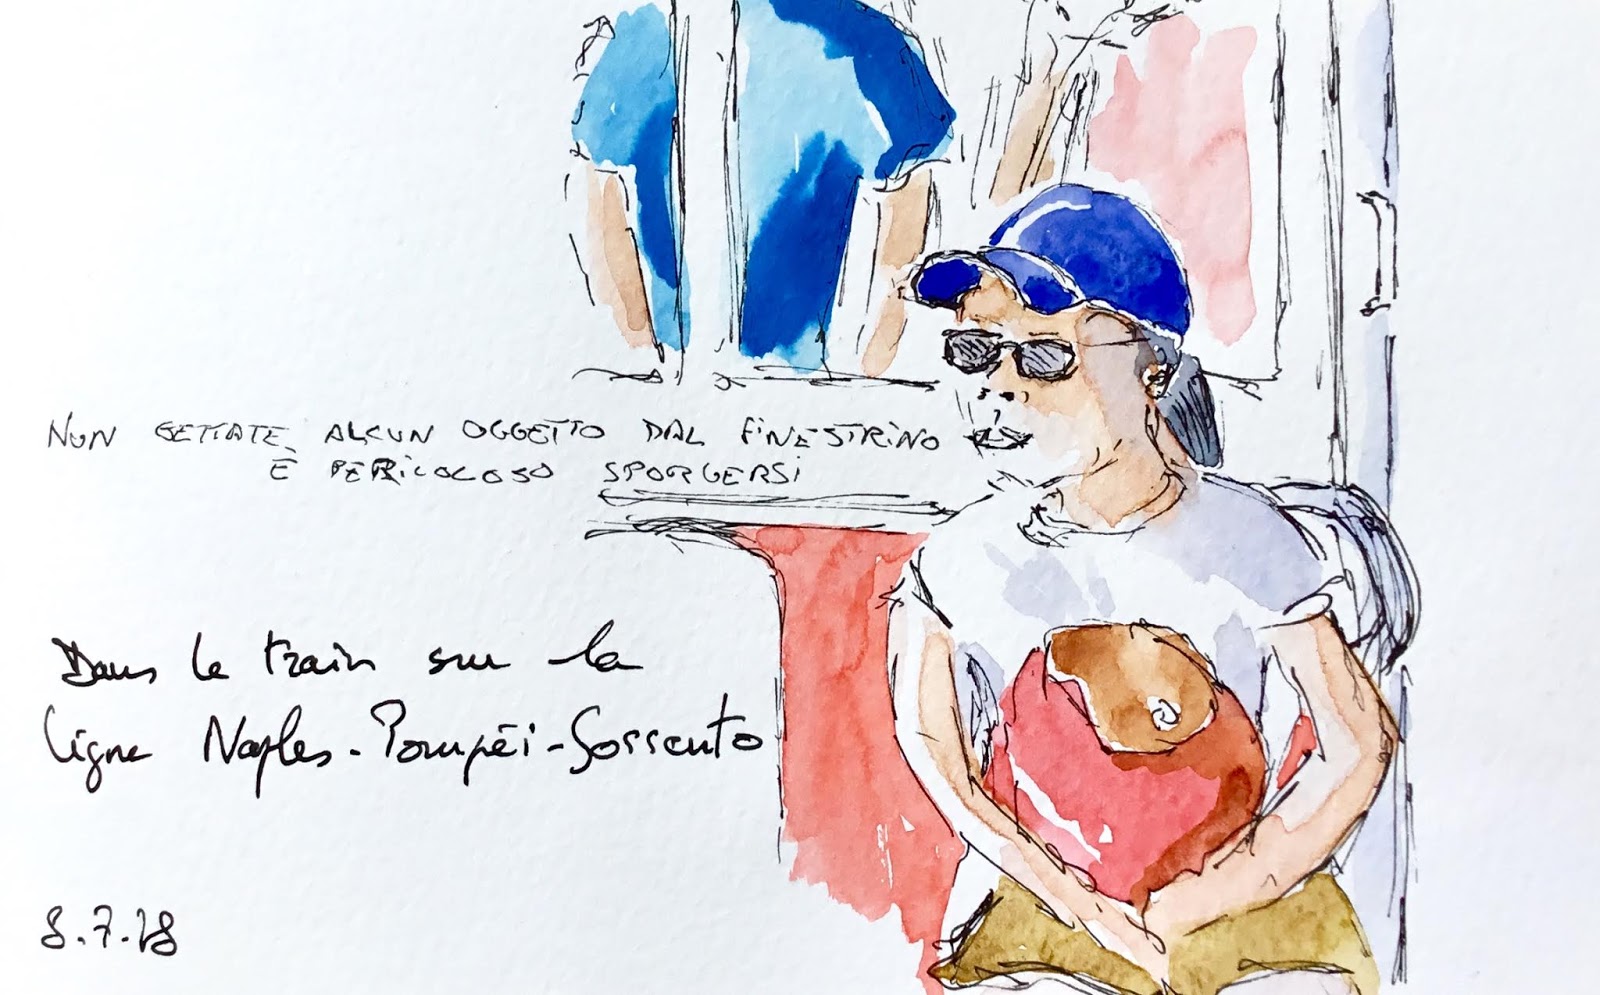 NON GETTATE ALCUN OGGETTO DAL FINESTRINO
È PERICOLOSO SPORGERSI
Dans le train sur la
ligne Naples-Pompéi-Sorrento
8.7.18